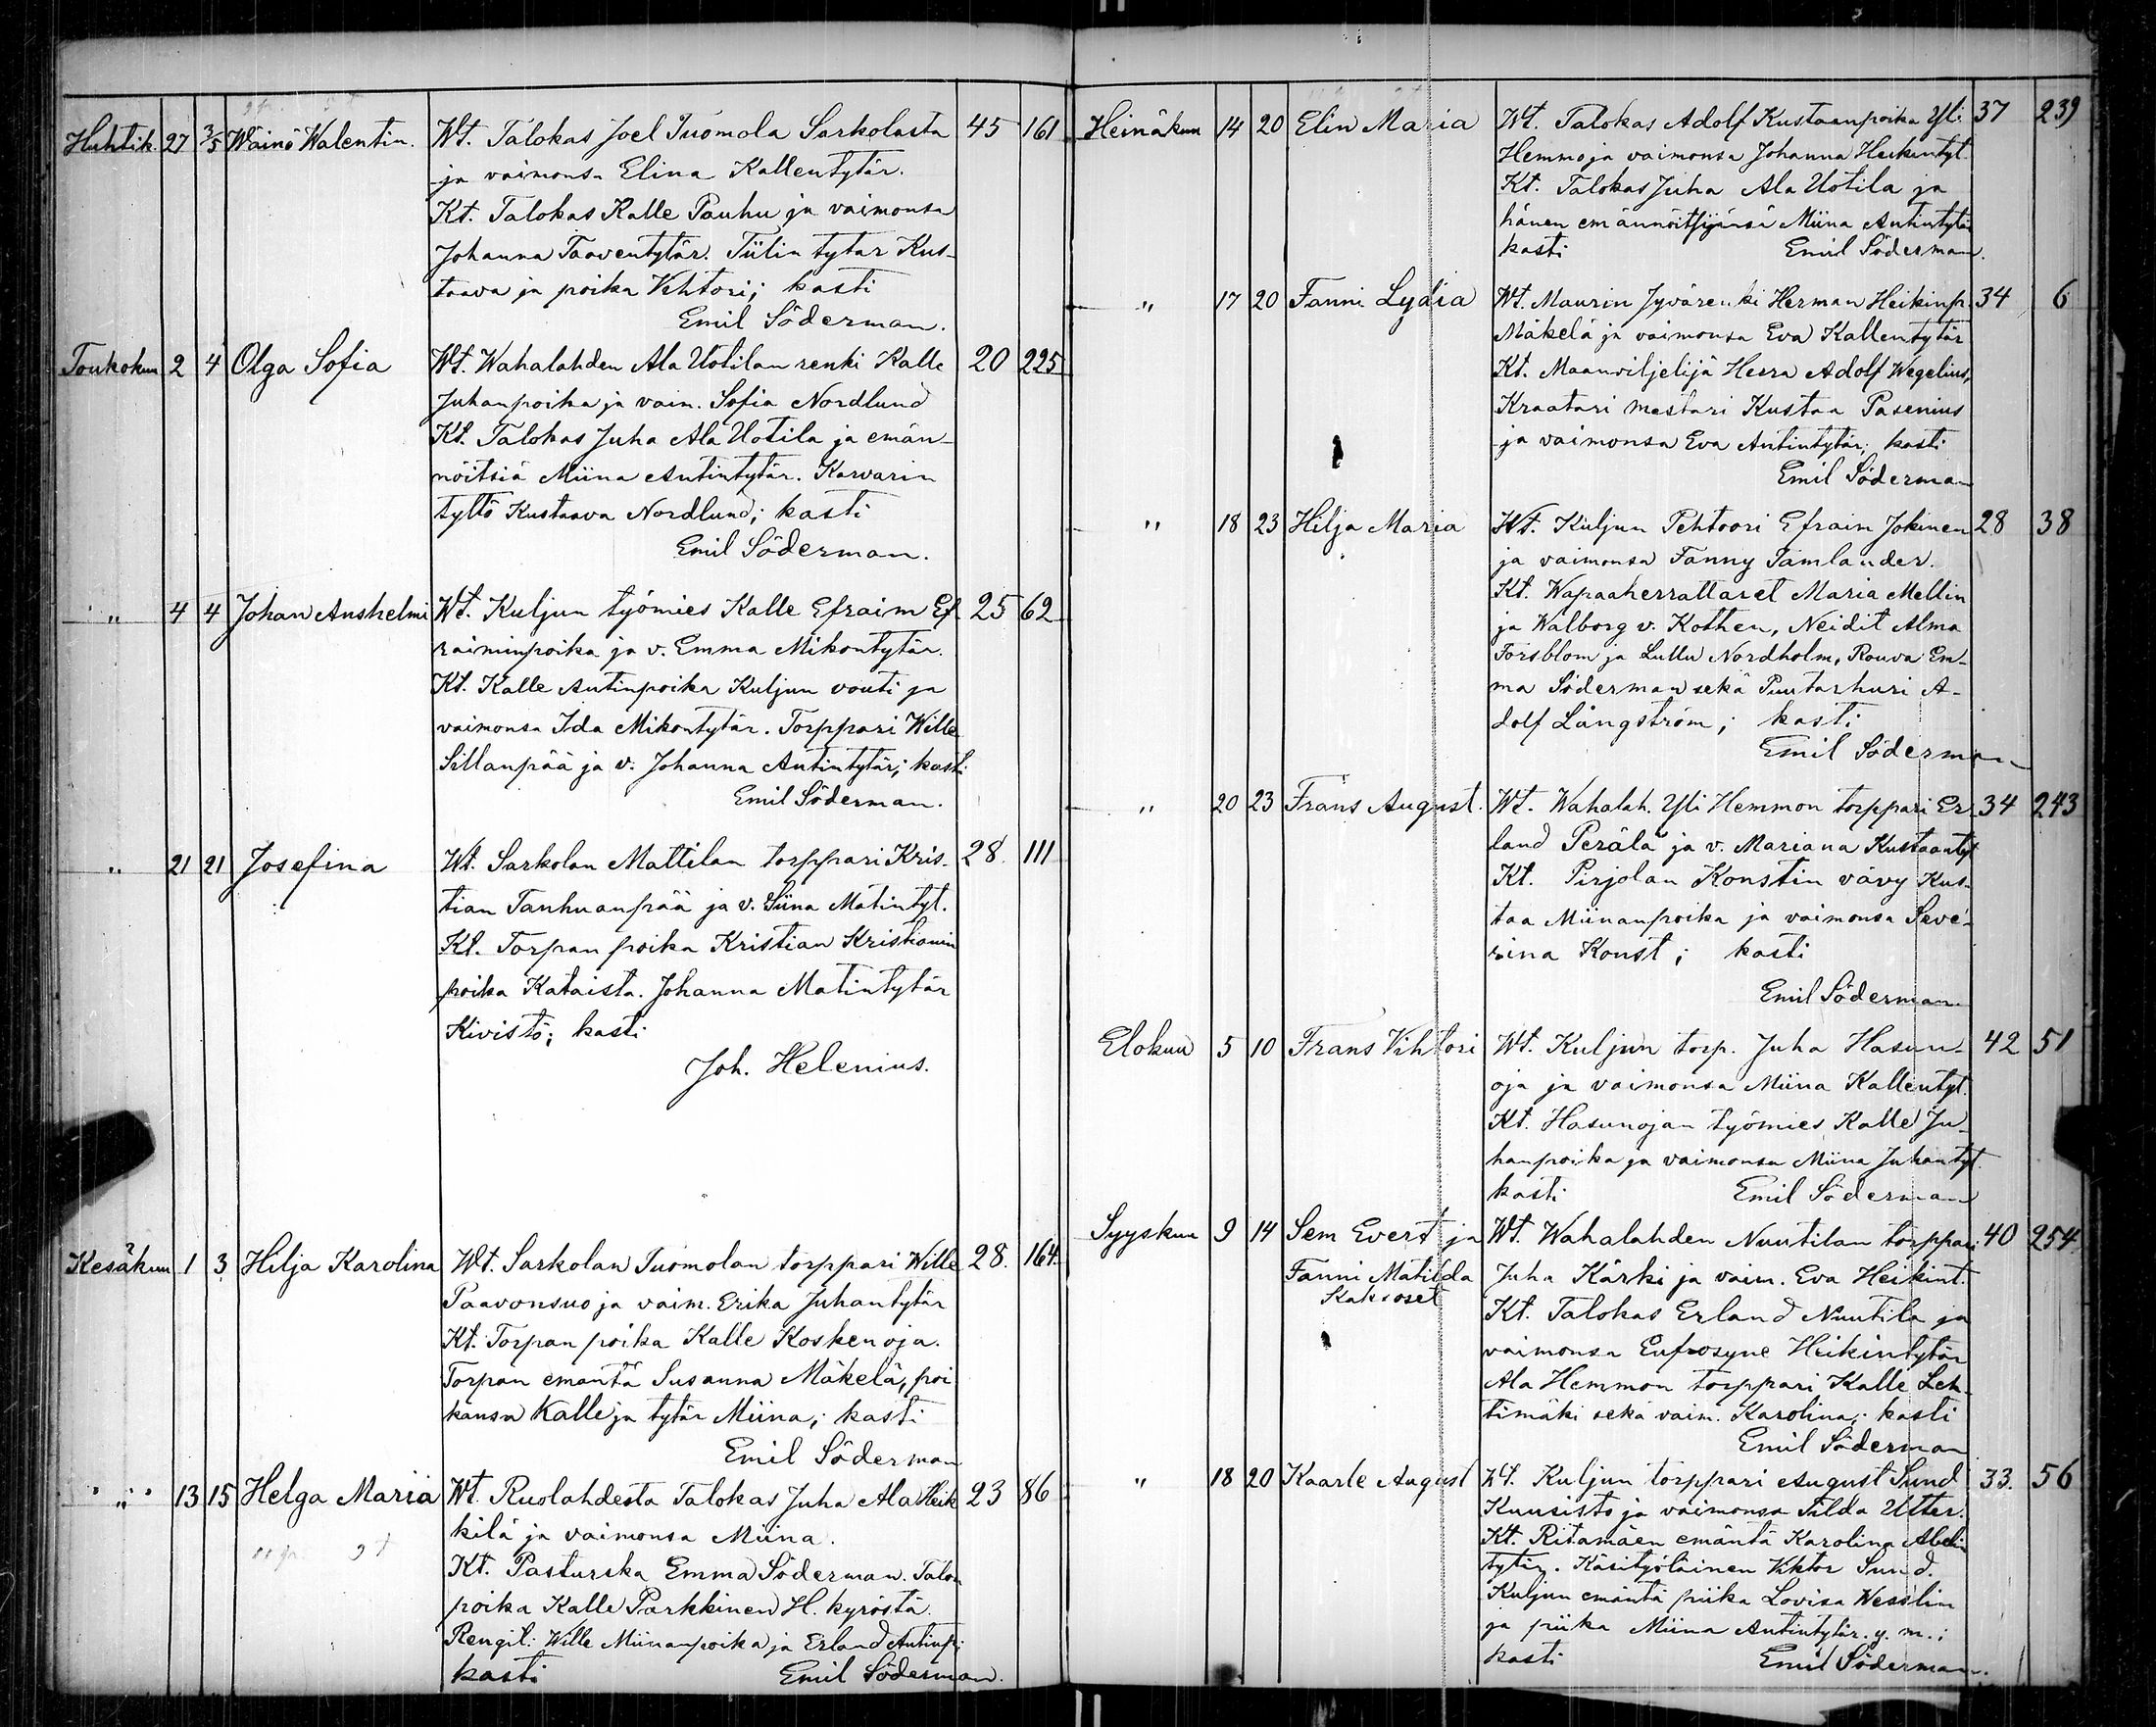 Huhtik. 27 3/5 Wäinö Walentin. Wt. Talokas Joel Tuomola Sarkolasta 45 161
ja vaimonsa Elina Kallentytär.
Kt. Talokas Kalle Pauhu ja vaimonsa
Johanna Taaventytär. Tiilin tytär Kus-
taava ja poika Vihtori; kasti
Emil Söderman.
Toukokuu 2 4 Olga Sofia Wt. Wahalahden Ala Uotilan renki Kalle 20 225
Juhanpoika ja vaim. Sofia Nordlund
Kt. Talokas Juha Ala Uotila ja emän-
nöitsiä Miina Antintytär. Karvarin
tyttö Kustaava Nordlund; kasti
Emil Söderman.
" 4 4 Johan Anshelmi Wt. Kuljun työmies Kalle Efraim Ef- 25 62
raiminpoika ja v. Emma Mikontytär.
Kt. Kalle Antinpoika Kuljun vouti ja
vaimonsa Ida Mikontytär. Torppari Wille
Sillanpää ja v. Johanna Antintytär; kasti
Emil Söderman.
" 21 21 Josefina Wt. Sarkolan Mattilan torppari Kris- 28. 111
tian Tanhuanpää ja v. Siina Matintyt.
Kt. Torpan poika Kristian Kristianin
poika Kataista. Johanna Matintytär
Kivistö; kasti
Joh. Helenius.
Kesäkuu 1 3 Hilja Karolina Wt. Sarkolan Tuomolan torppari Wille 28. 164.
Paavonsuo ja vaim. Erika Juhantytär
Kt. Torpan poika Kalle Koskenoja.
Torpan emäntä Susanna Mäkelä, poi
kansa Kalle ja tytär Miina; kasti
Emil Söderman
" 13 15 Helga Maria Wt. Ruolahdesta Talokas Juha Ala Heik 23 86
kilä ja vaimonsa Miina.
Kt. Pasturska Emma Söderman. Talon
poika Kalle Parkkinen H. kyröstä.
Rengit: Wille Miinanpoika ja Erland Antinp.;
kasti Emil Söderman.
Heinäkuu 14 20 Elin Maria Wt. Talokas Adolf Kustaanpoika Yli 37 239
Hemmo ja vaimonsa Johanna Heikintyt.
Kt. Talokas Juha Ala Uotila ja
hänen emännöitsijänsä Miina Antintytär
kasti Emil Söderman.
" 17 20 Fanni Lydia Wt. Maurin Jyvärenki Herman Heikinp. 34 6
Mäkelä ja vaimonsa Eva Kallentytär
Kt. Maanviljelijä Herra Adolf Wegelius,
Kraatari mestari Kustaa Pasenius
ja vaimonsa Eva Antintytär; kasti
Emil Söderman
" 18 23 Hilja Maria Wt. Kuljun Pehtoori Efraim Jokinen 28 38
ja vaimonsa Fanny Tamlander.
Kt. Wapaaherrattaret Maria Mellin
ja Walborg v. Kothen, Neidit Alma
Forsblom ja Lullu Nordholm, Rouva Em-
ma Söderman sekä Puutarhuri A-
dolf Långström; kasti
Emil Söderman
" 20 23 Frans August. Wt. Wahalah. Yli Hemmon torppari Er- 34 243
land Perälä ja v. Mariana Kustaantyt
Kt. Pirjolan Konstin vävy Kus-
taa Miinanpoika ja vaimonsa Seve-
rina Konst; kasti
Emil Söderman
Elokuu 5 10 Frans Vihtori Wt. Kuljun torp. Juha Hasun- 42 51
oja ja vaimonsa Miina Kallentyt.
Kt. Hasunojan työmies Kalle Ju-
hanpoika ja vaimonsa Miina Juhantyt.
kasti Emil Söderman
Syyskuu 9 14 Sem Evert ja Wt. Wahalahden Nuutilan torppari 40 254
Fanni Matilda Juha Kärki ja vaim. Eva Heikint.
Kaksoset Kt. Talokas Erland Nuutila ja
vaimonsa Eufrosyne Heikintytär
Ala Hemmon torppari Kalle Leh-
timäki sekä vaim. Karolina; kasti
Emil Söderman
" 18 20 Kaarle August Wt. Kuljun torppari August Sund 33. 56
Kuusisto ja vaimonsa Tilda Utter.
Kt. Ritamäen emäntä Karolina Abelin
tytär. Käsityöläinen Viktor Sund.
Kuljun emäntä piika Lovisa Wesslin
ja piika Miina Antintytär. y. m.;
kasti Emil Söderman.